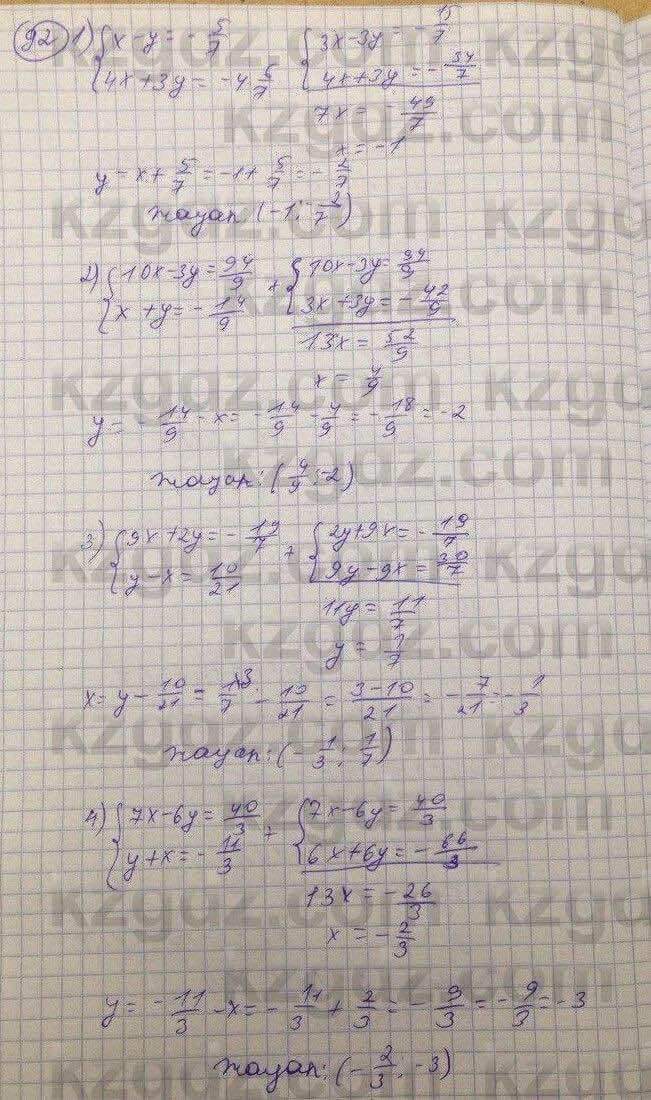 92 1) { x - y = - 5/7 { 3x - 3y = - 15/7
4x + 3y = - 4 6/7 4x + 3y = - 34/7
7x = - 49/7
x = -1
y - x + 5/7 = -1 + 5/7 = - 2/7
Жауап: (-1; - 2/7)
2) { 10x - 3y = 94/9 + { 10x - 3y = 94/9
x + y = - 14/9 3x + 3y = - 42/9
13x = 52/9
x = 4/9
y = - 14/9 - x = - 14/9 - 4/9 = - 18/9 = -2
Жауап: (4/9; -2)
3) { 9x + 2y = - 19/7 + { 2y + 9x = - 19/7
y - x = 10/21 9y - 9x = 30/7
11y = 11/7
y = 1/7
x = y - 10/21 = 1/7 \3 - 10/21 = 3-10/21 = - 7/21 = - 1/3
Жауап: (- 1/3; 1/7)
4) { 7x - 6y = 40/3 + { 7x - 6y = 40/3
y + x = - 11/3 6x + 6y = - 66/3
13x = - 26/3
x = - 2/3
y = - 11/3 - x = - 11/3 + 2/3 = - 9/3 = - 9/3 = -3
Жауап: (- 2/3; -3)
kzgdz.com